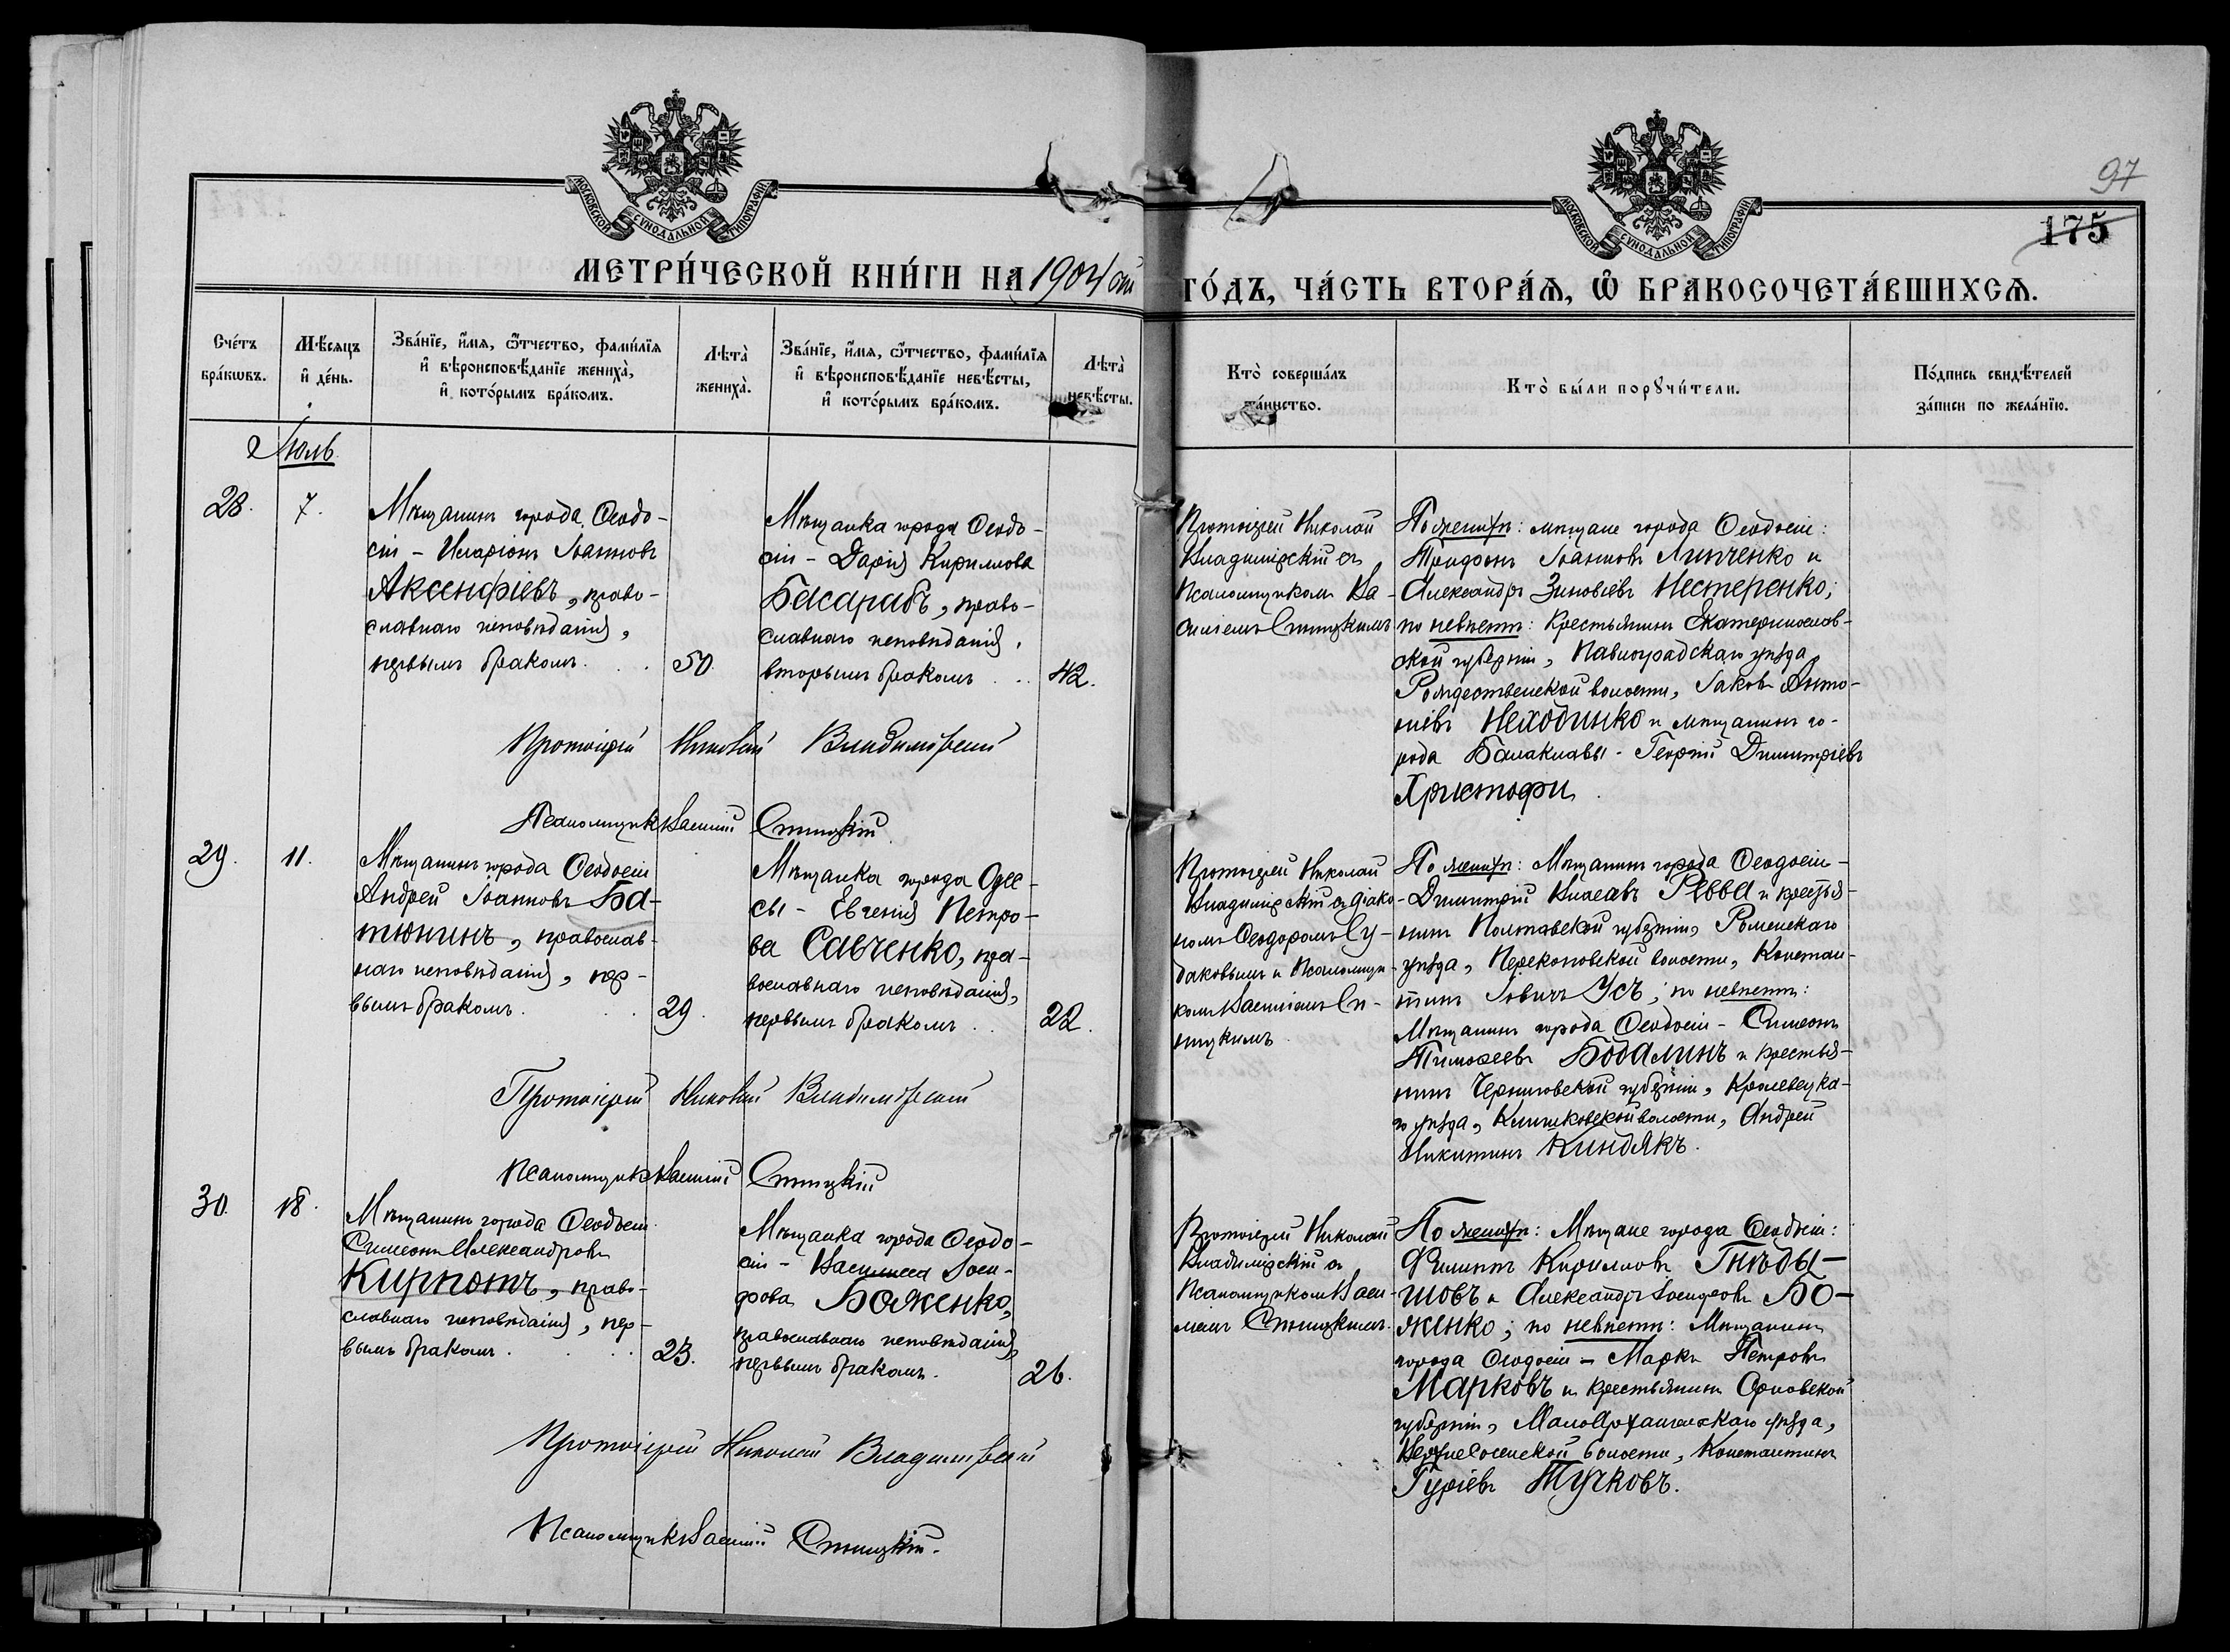 97
175
МОСКОВСКОЙ СУНОДАЛЬНОЙ ТИПОГРАФІИ
МОСКОВСКОЙ СУНОДАЛЬНОЙ ТИПОГРАФІИ
МЕТРИ́ЧЕСКОЙ КНИ́ГИ НА 1904 ой ГО́ДЪ, ЧА́СТЬ ВТОРА́Ѧ, Ѽ БРАКОСОЧЕТА́ВШИХСѦ.
Сче́тъ
бра́кѡвъ.
Мѣ́сяцъ
и҆ де́нь.
Зва́нїе, и҆́мѧ, ѻ҆́тчество, фами́лїѧ
и҆ вѣроисповѣ́данїе жениха̀,
и҆ кото́рымъ бра́комъ.
Лѣта̀
жениха̀.
Зва́нїе, и҆́мѧ, ѻ҆́тчество, фами́лїѧ
и҆ вѣроисповѣ́данїе невѣ́сты,
и҆ кото́рымъ бра́комъ.
Лѣта̀
невѣ́сты.
Кто̀ соверша́лъ
та́инство.
Кто̀ бы́ли порꙋчи́тели.
По́дпись свидѣ́телей
за́писи по жела́нїю.
Іюль
28.
7.
Мѣщанинъ города Ѳеодо-
сіи - Иларіонъ Іоанновъ
Аксенфіевъ, право-
славнаго исповѣданія,
первымъ бракомъ . .
50.
Мѣщанка города Ѳеодо-
сіи - Дарія Кириллова
Басарабъ, право-
славнаго исповѣданія,
вторымъ бракомъ . .
42.
Протоіерей Николай
Владимірскій съ
Псаломщикомъ Ва-
силіемъ Спицкимъ
По женихѣ: мѣщане города Ѳеодосіи:
Трифонъ Іоанновъ Липченко и
Александръ Зиновіевъ Нестеренко;
по невѣстѣ: Крестьянинъ Екатеринослав-
ской губерніи, Павлоградскаго уѣзда,
Рождественской волости, Іаковъ Анто-
ніевъ Неходинко и мѣщанинъ го-
рода Балаклавы - Георгій Димитріевъ
Христофи.
Протоіерей Николай Владимірскій
Псаломщикъ Василій Спицкій
29.
11.
Мѣщанинъ города Ѳеодосіи
Андрей Іоанновъ Ба-
тюнинъ, православ-
наго исповѣданія, пер-
вымъ бракомъ . .
29.
Мѣщанка города Одес-
сы - Евгенія Петро-
ва Савченко, пра-
вославнаго исповѣданія,
первымъ бракомъ . .
22.
Протоіерей Николай
Владимірскій съ діако-
номъ Ѳеодоромъ Су-
даковымъ и Псаломщи-
комъ Василіемъ Сп-
ицкимъ
По женихѣ: Мѣщанинъ города Ѳеодосіи -
Димитрій Власовъ Ревва и крестья-
нинъ Полтавской губерніи, Роменскаго
уѣзда, Перекоповской волости, Констан-
тинъ Іовичъ Усъ; по невѣстѣ:
Мѣщанинъ города Ѳеодосіи - Симеонъ
Тимоѳеевъ Бодалинъ и крестья-
нинъ Черниговской губерніи, Кролевецка-
го уѣзда, Клишковской волости, Андрей
Никитинъ Киндякъ.
Протоіерей Николай Владимірскій
Псаломщикъ Василій Спицкій
30.
18.
Мѣщанинъ города Ѳеодосіи
Симеонъ Александровъ
Кирпотъ, право-
славнаго исповѣданія, пер-
вымъ бракомъ . .
23.
Мѣщанка города Ѳеодо-
сіи - Василисса Іоси-
фова Боженко,
православнаго исповѣданія,
первымъ бракомъ.
26.
Протоіерей Николай
Владимірскій съ
Псаломщикомъ Васи-
ліемъ Спицкимъ.
По женихѣ: Мѣщане города Ѳеодосіи:
Филиппъ Кирилловъ Гнѣды-
шовъ и Александръ Іосифовъ Бо-
женко; по невѣстѣ: Мѣщанинъ
города Ѳеодосіи - Маркъ Петровъ
Марковъ и крестьянинъ Орловской
губерніи, Малоархангельскаго уѣзда,
волости, Константинъ
Гуріевъ Тучковъ.
Протоіерей Николай Владимірскій
Псаломщикъ Василій Спицкій.